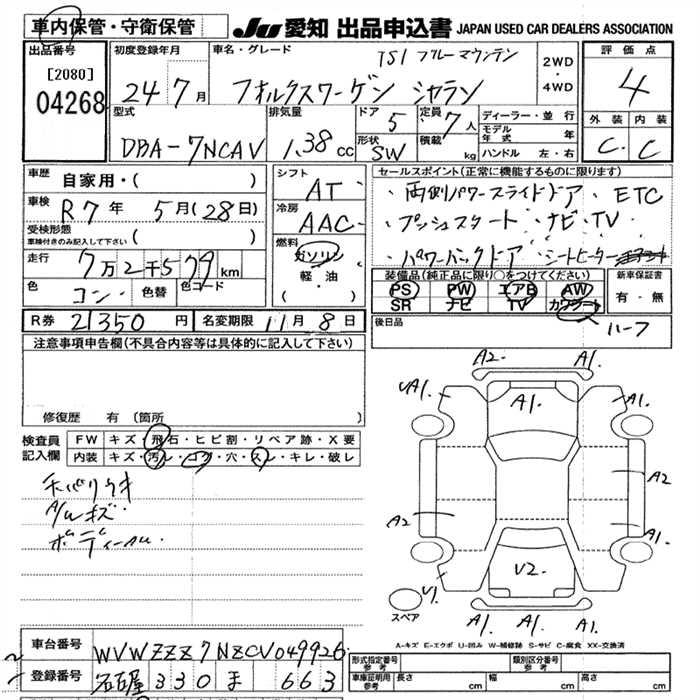 車内保管・守衛保管 JU 愛知 出品申込書 JAPAN USED CAR DEALERS ASSOCIATION
出品番号 初度登録年月 車名・グレード TSI ブルーマウンテン 2WD・4WD 評価点
[2080]
04268 24年 7月 フォルクスワーゲン シャラン 4
型式 排気量 ドア 5 定員 7人 ディーラー・並行 外装 内装
DBA-7NCAV 1.38cc 形状 SW 積載 kg モデル年式 年 C C
ハンドル 左・右
車歴 自家用・( ) シフト AT セールスポイント(正常に機能するものに限ります)
車検 R7年 5月(28日) 冷房 AAC ・両側パワースライドドア・ETC
受検形態 車検付きのみ記入して下さい ( ) ・プッシュスタート・ナビ・TV
走行 7万2千579km 燃料 ガソリン・軽・油 ・パワーバックドア・シートヒーター
色 コン 色替 色コード 装備品(純正品に限り○をつけてください) 新車保証書
PS PW エアB AW 有・無
SR ナビ TV カワシート
R券 21350円 名変期限 11月8日 後日品 ハーフ
注意事項申告欄(不具合内容等は具体的に記入して下さい)
修復歴 有 (箇所
検査員記入欄 FW キズ・飛石・ヒビ割・リペア跡・X要
内装 キズ・汚レ・コゲ・穴・スレ・キレ・破レ
A/Wキズ
A2. A1.
A1. A1. A1.
A2
A2 A1.
V2.
V1.
A1. A1. A1.
スペア
A-キズ E-エクボ U-凹み W-補修跡 S-サビ C-腐食 XX-交換済
車台番号 WVWZZZ7NZCV049926
登録番号 名古屋 330 ま 663
形式指定番号 参考 類別区分番号 参考
車庫証明用 参考 長さ cm 幅 cm 高さ cm